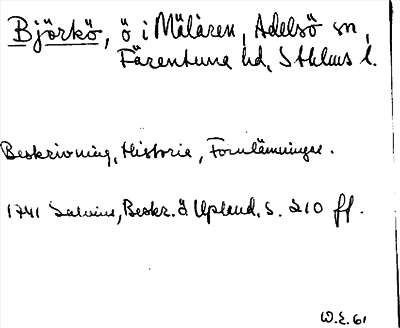 Björkö, ö i Mälaren, Adelsö sn,
Färentuna hd, Sthlms l.
Beskrivning, Historia, Fornlämningar.
1741 Salvius, Beskr. ö. Upland. s. 210 ff.
W.E. 61